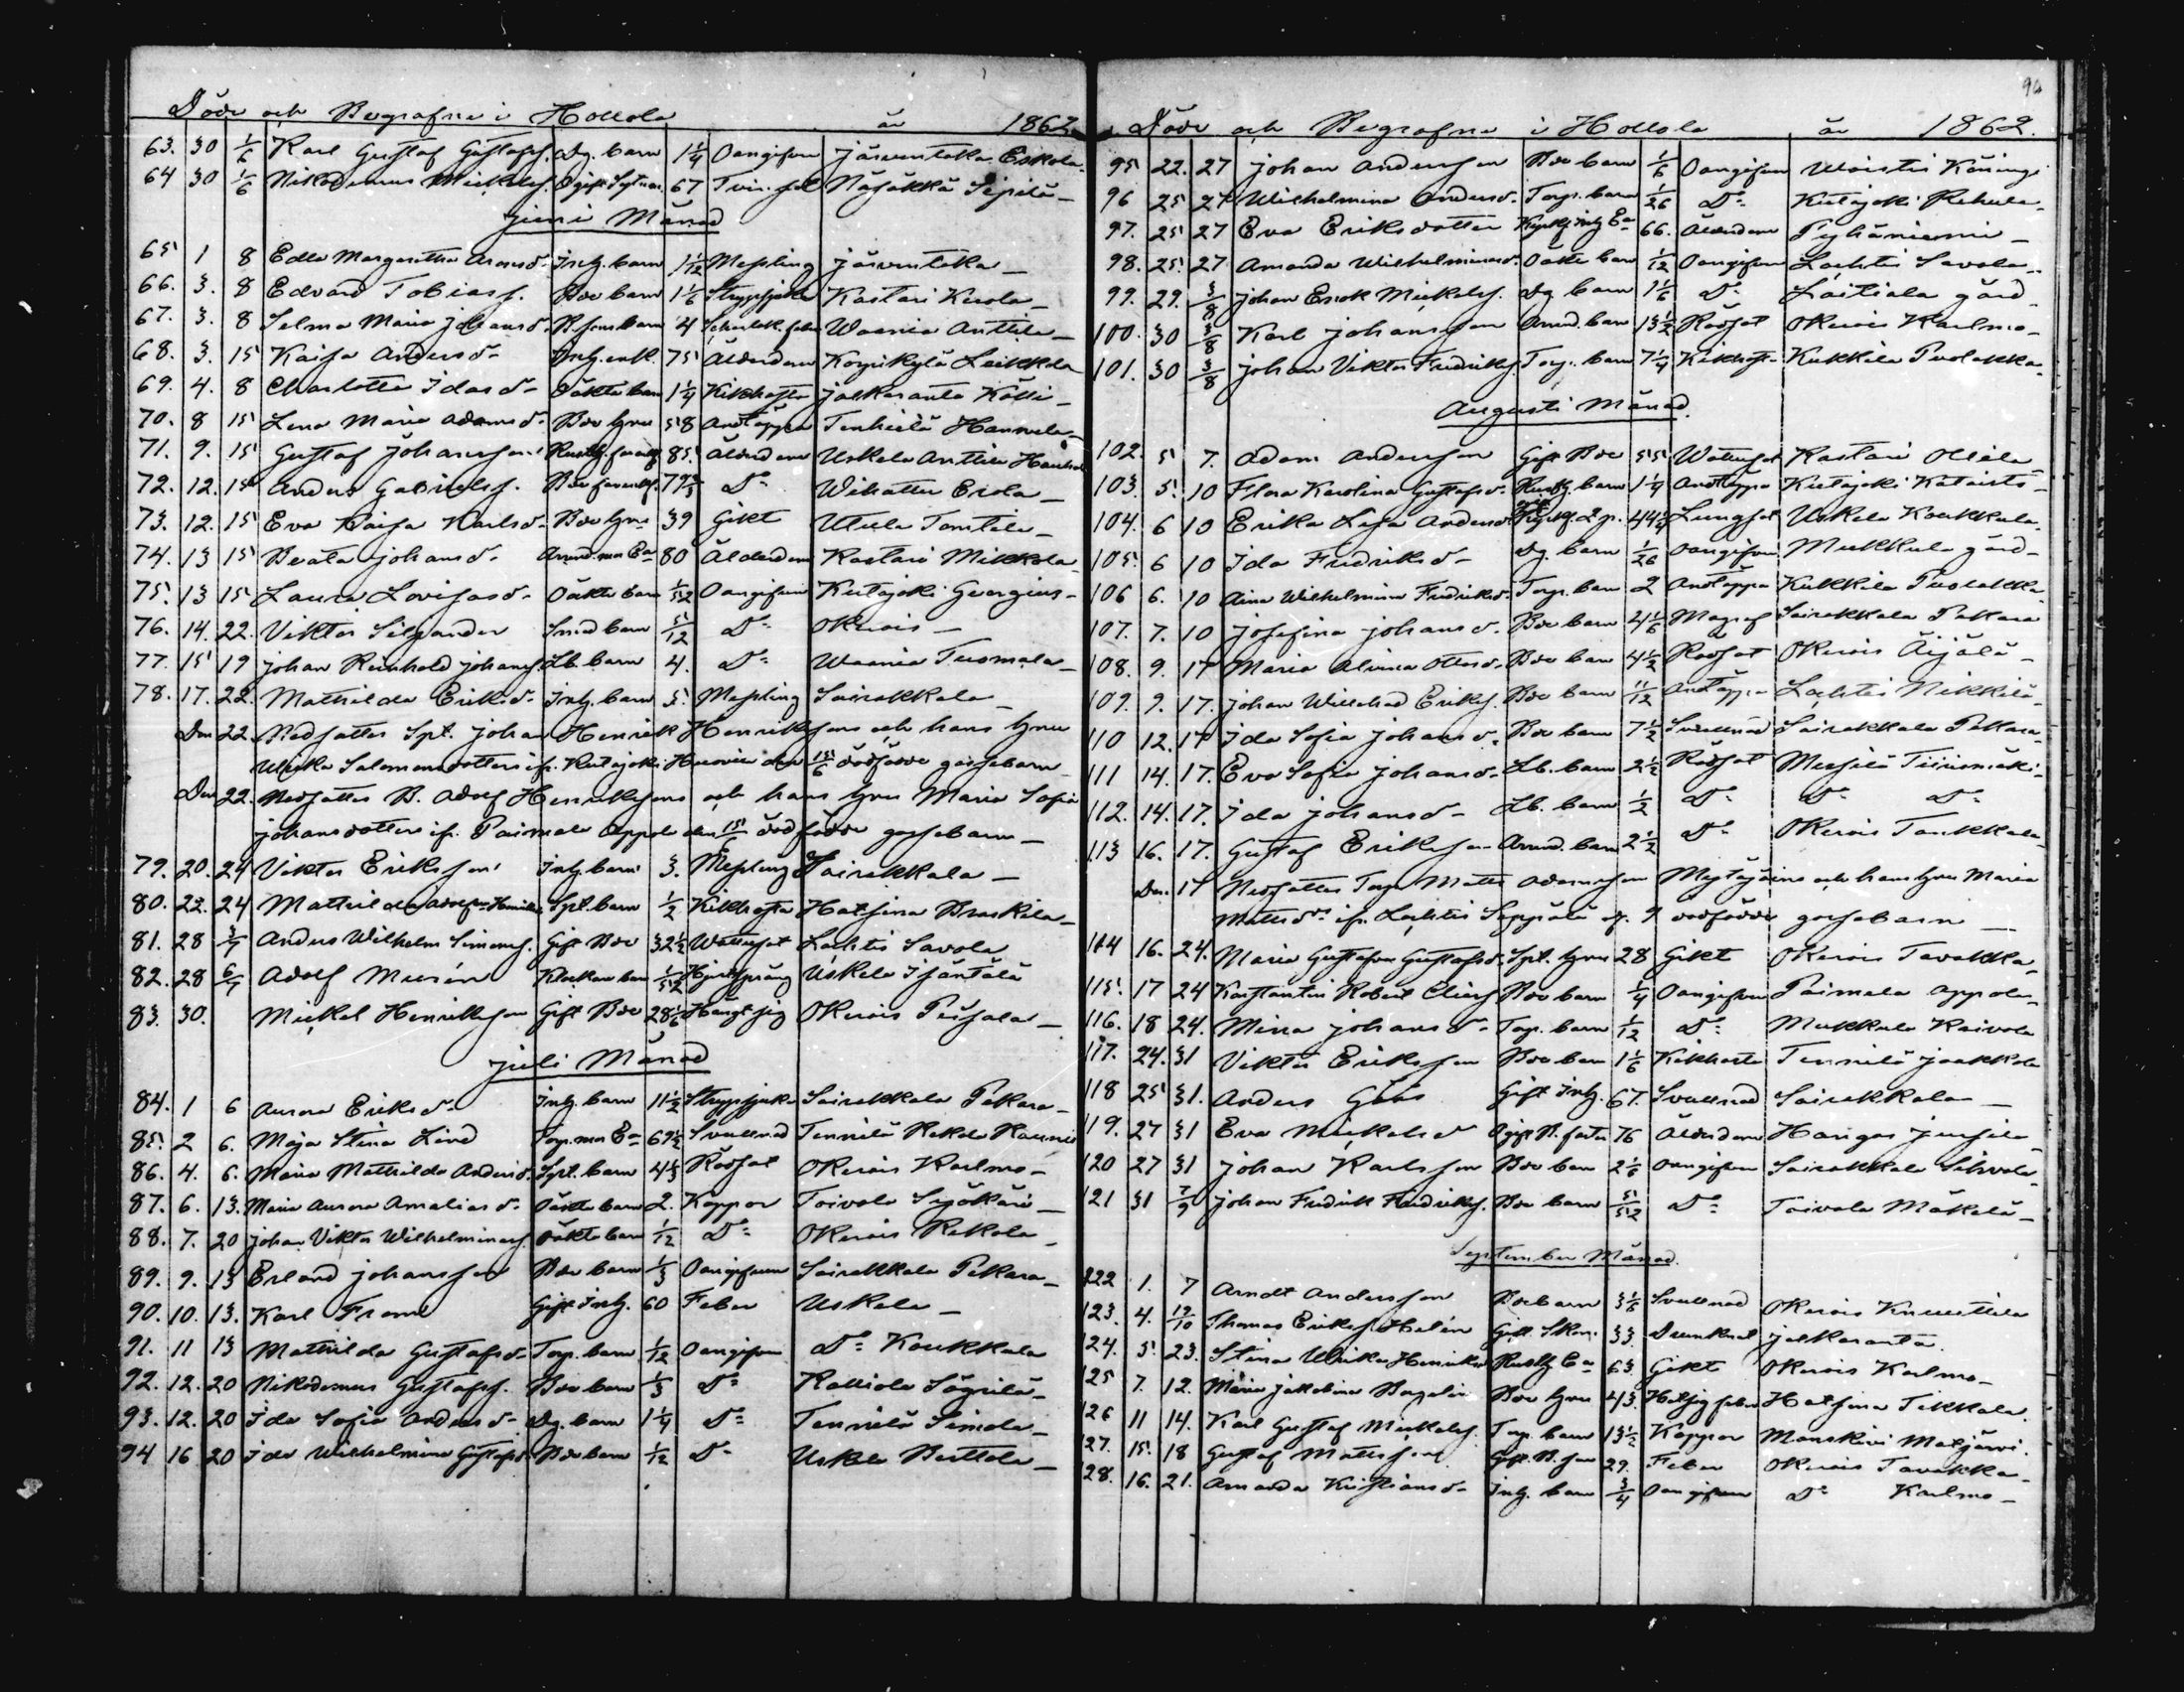 Döde och Begrafne i Hollola år 1862
63. 30 1/6 Karl Gustaf Gustafss. Dg. barn 1 1/4 Oangifven Järventaka Eskola
64 30 1/6 Nikodemus Mickelss. 67 Näsäkkä Sipilä
Juni Månad
65 1 8 Edla Margaretha Inh. barn 1 1/12 Messling Järventaka
66. 3. 8 Edvard Tobiass. Bde barn 1 1/6 Strypsjuka Kastari Kuola
67. 3. 8 Selma Maria Johansd. 4 Waania Anttila
68. 3. 15 Kaisa Andersd. Inh. enk. 75 Ålderdom Kopsikylä Leikkola
69. 4. 8 Charlotta Idasd. Oäkta barn 1 1/4 Kikhosta Jalkaranta Kölli
70. 8 15 Lena Maria Adamsd. Bde hru 58 Andtäppa Tenhiälä Hannula
71. 9. 15 Gustaf Johansson 85. Ålderdom Uskela Anttila
72. 12. 15 Anders Gabrielss. 79 Do Wihattu Erola
73. 12. 15 Eva Kaisa Karlsd. Bde hru 39 Gikt Utula Tomtila
74. 13 15 Beata Johansd. 80 Ålderdom Kastari Mikkola
75. 13 15 Laura Lovisasd. Oäkta barn 1/52 Oangifven Kutajoki Georgius
76. 14. 22. Viktor Silfvander Smed barn 5/12 Do Okerois
77. 15 19 Johan Reinhold Johanss. Lb. barn 4. Do Waania Tuomala
78. 17. 22. Mathilda Eriksd. Inh. barn 5. Messling Sairakkala
Den 22. Nedsattes Spt. Johan Henrik Henrikssons och hans hru
Ulrika Salomonsdotters ifr. Kutajoki den 15/6 dödfödde gossebarn
Den 22. Nedsattes B. Adolf Henrikssons och hans hru Maria Sofia
Johansdotters ifr. Paimala Appola den 15/6 dödfödde gossebarn
79. 20. 24 Viktor Eriksson Inh. barn 3. Messling Sairakkala
80. 22. 24 Mathilda Spt. barn 1/2 Kikhosta Hatsina Braskila
81. 28 3/7 Anders Wilhelm Simonss. Gift Bde 32 1/2 Wattusot Lachtis Savola
82. 28 6/7 Adolf Murén Klockar barn 1/52 Hjertsprång Uskela
83. 30. Mickel Henriksson Gift Bde 28 1/6 Hängt sig Okerois Pussala
Juli Månad
84. 1 6 Aurora Eriksd. Inh. barn 11 1/2 Strypsjuka Sairakkala Pekara
85. 2 6. Maja Stina Lind 69 1/2 Svullnad Tennilä Rekola
86. 4. 6. Maria Mathilda Andersd. Spt. barn 4 Rödsot Okerois Karlmo
87. 6. 13. Maria Aurora Amaliasd. Oäkta barn 2. Koppor Toivola
88. 7. 20 Johan Viktor Wilhelminass. Oäkta barn 1/12 Do Okerois Rekola
89. 9. 13 Erland Johansson Bde barn 1/3 Oangifven Sairakkala Pekara
90. 10. 13. Karl From Gift Inh. 60 Feber Uskela
91. 11 13 Mathilda Gustafsd. Torp. barn 1/12 Oangifven Do Koukkula
92. 12. 20 Nikodemus Gustafss. Bde barn 1/3 Do Kalliola
93. 12. 20 Ida Sofia Andersd. Dg. barn 1 1/4 Do Tennilä Simola
94 16 20 Ida Wilhelmina Gustafsd. Bde barn 1/12 Do Uskela Perttola
94
Döde och Begrafne i Hollola år 1862.
95 22. 27 Johan Andersson Bde barn 1/6 Oangifven
96 25 27 Wilhelmina Andersd. Torp. barn 1/26 Do Kutajoki Rekula
97. 25 27 Eva Eriksdotter 66. Ålderdom Pyhäniemi
98. 25. 27 Amanda Wilhelminasd. Oäkta barn 1/12 Oangifven Lachtis Savola
99. 29. 3/8 Johan Erick Mickelss. Dg barn 1 1/6 Do Laitiala gård
100. 30 3/8 Karl Johansson Arrend. barn 13 1/2 Rödsot Okerois Karlmo
101. 30 3/8 Johan Viktor Fredrikss. Torp. barn 7 1/4 Kikhosta Kukkila Puolakka
Augusti Månad
102. 5 7. Adam Andersson Gift Bde 55 Wattusot Kastari Ollila
103. 5. 10 Flora Karolina Gustafsd. barn 1 1/4 Andtäppa Kutajoki Kataisto
104. 6 10 Erika Lisa Andersd. Lungsot Uskela Koukkula
105. 6 10 Ida Fredriksd. Dg. barn 1/26 Oangifven Mukkula gård
106 6. 10 Aina Wilhelmina Fredriksd. Torp. barn 2 Andtäppa Kukkila Puolakka
107. 7. 10 Josefina Johansd. Bde barn 4 1/6 Magref Sairakkala Pekara
108. 9. 17 Maria Alvina Ottosd. Bde barn 4 1/2 Rödsot Okerois Äijälä
109. 9. 17. Johan Willehad Erikss. Bde barn 11/12 Andtäppa Lachtis Nikkilä
110 12. 17 Ida Sofia Johansd. Bde barn 7 1/2 Svullnad Sairakkala Pekara
111 14. 17. Eva Sofia Johansd. Lb. barn 2 1/2 Rödsot Messilä Tiirismäki
112. 14. 17. Ida Johansd. Lb. barn 1/2 Do Do Do
113 16. 17. Gustaf Eriksson Arrend. barn 2 1/2 Do Okerois Taukkala
Den 17 Nedsattes Torp. Matts Adamsson och hans hru Maria
Mattsds ifr. Lachtis Seppälä d. 9 dödfödde gossebarn
114 16. 24. Maria Gustafva Gustafsd. Spt. hru 28 Gikt Okerois Tavakka
115. 17 24 Konstantin Robert Eliass. Bde barn 1/4 Oangifven Paimala Appola
116. 18 24. Mina Johansd. Torp. barn 1/12 Do Mukkula Kaivola
117. 24. 31 Viktor Eriksson Bde barn 1 1/6 Kikhosta Tennilä Jaakkola
118 25 31. Anders Gift Inh. 67. Svullnad Sairakkala
119. 27 31 Eva Mickelsd. 76 Ålderdom Hangas Jussila
120 27 31 Johan Karlsson Bde barn 2 1/6 Oangifven Sairakkala Sihvola
121 31 7/9 Johan Fredrik Fredrikss. Bde barn 5/52 Do Toivola Mäkelä
September Månad
122 1. 7 Arndt Andersson Bde barn 3 1/6 Svullnad Okerois Knuuttila
123. 4. 19/10 Thomas Erikss. Helén Gift 33 Drunknat Jalkaranta
124. 5. 23. Stina Ulrika Henriksd. 63 Gikt Okerois Karlmo
125 7. 12. Maria Jakobina Bergelin Bde hru 43. Hatsina Tikkala
126 11 14. Karl Gustaf Mickelss. Torp. barn 13 1/2 Koppor Manskivi Matjärvi
27. 15. 18 Gustaf Mattsson 29. Feber Okerois Tavakka
28. 16. 21. Amanda Kristiansd. Inh. barn 3/4 Oangifven Do Karlmo